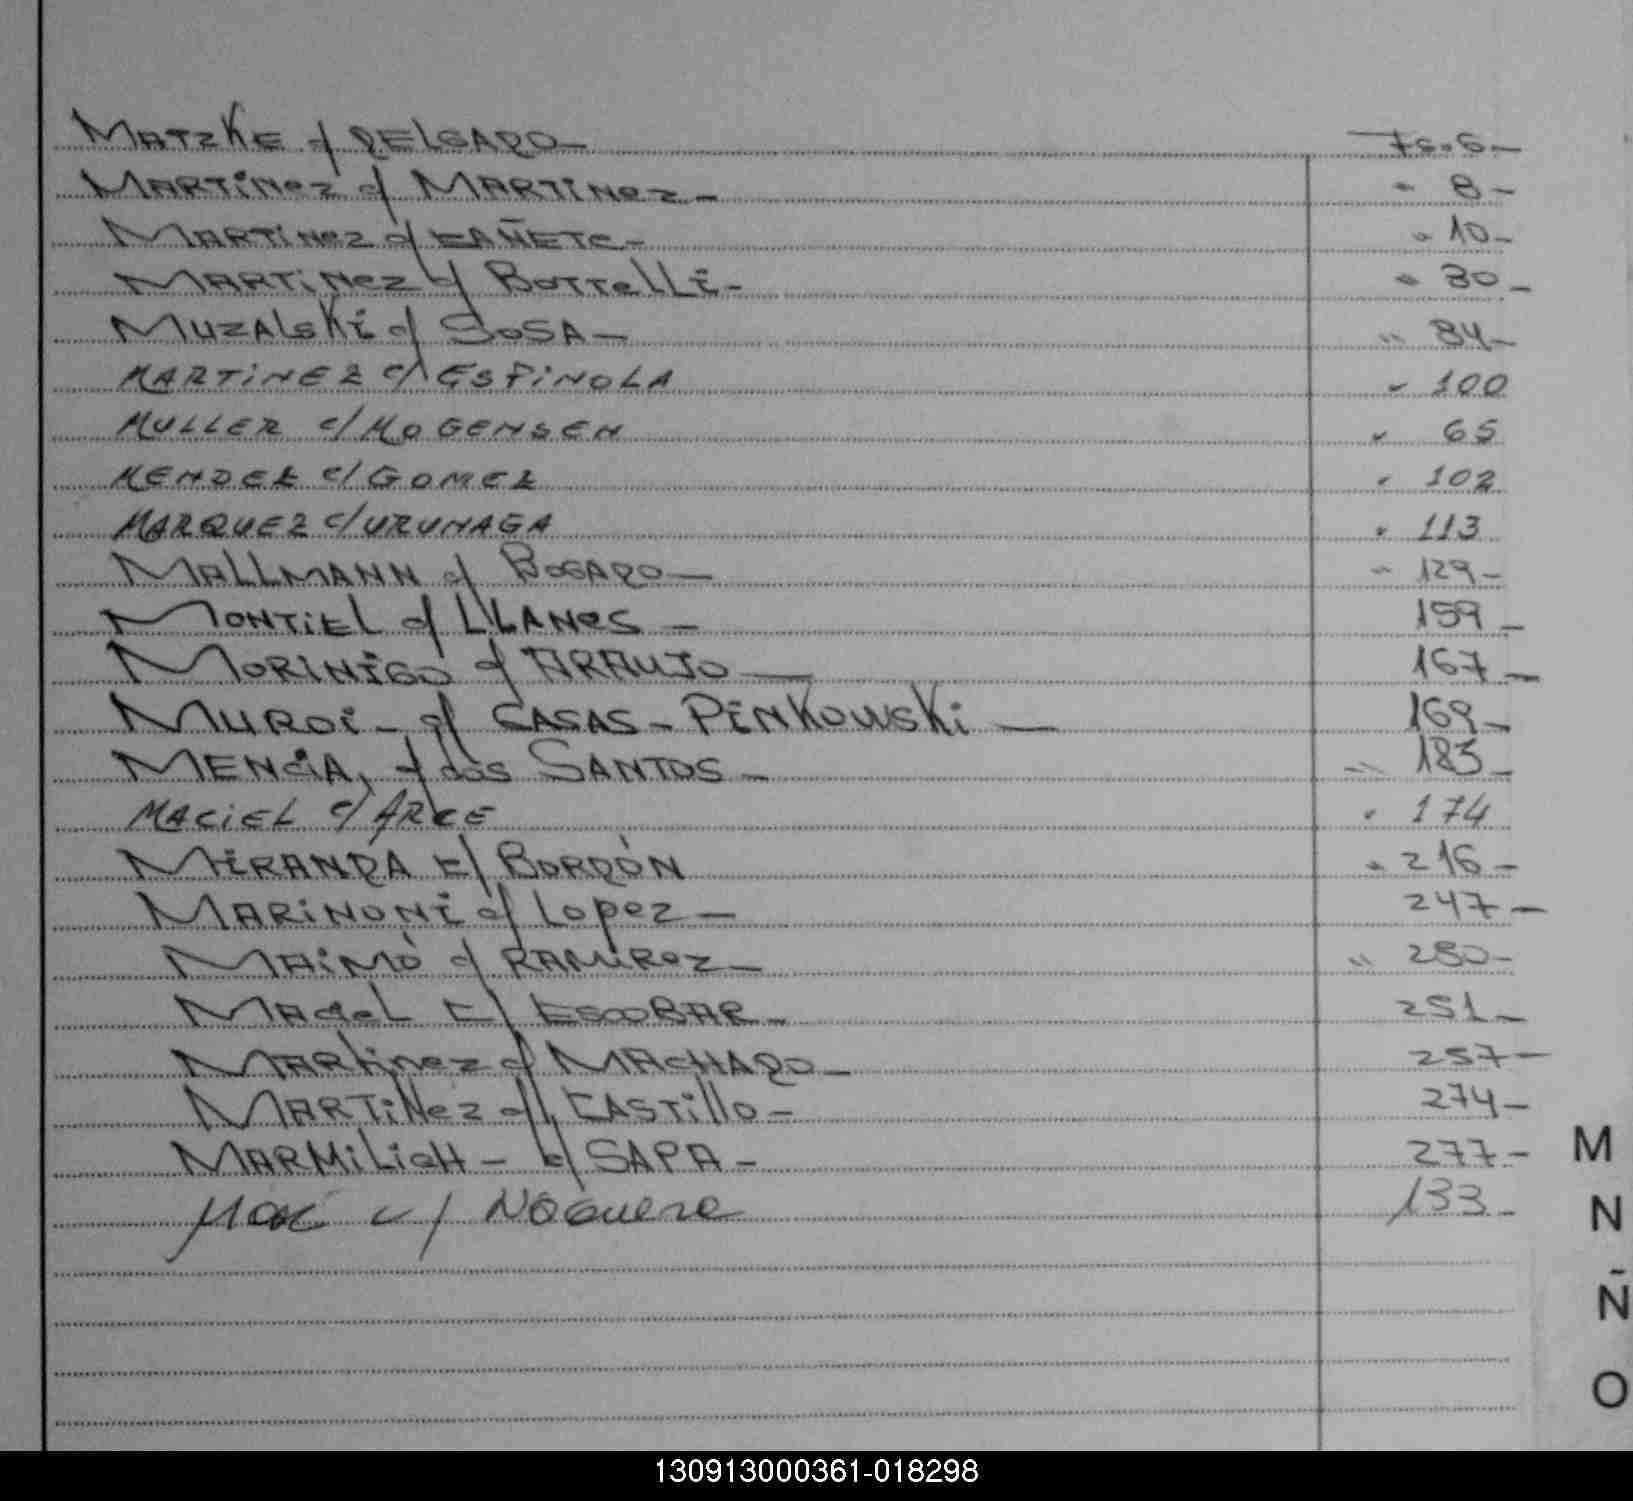 MATZKE c/ DELGADO— Fs. 6—
MARTINEZ c/ MARTINEZ— " 8—
MARTINEZ c/ CAÑETE— " 10—
MARTINEZ c/ BOTTELLI— " 30—
MUZALSKI c/ SOSA— " 84—
MARTINEZ c/ ESPINOLA " 100
MULLER c/ MOGENSEN " 65
MENDEZ c/ GOMEZ " 102
MARQUEZ c/ URUNAGA " 113
MALLMANN c/ BOGADO— " 129—
MONTIEL c/ LLANES— 159—
MORINIGO c/ ARAUJO— 167—
MUROI— c/ CASAS—PENKOWSKI— 169—
MENCIA, c/ dos SANTOS— " 183—
MACIEL c/ ARCE " 174
MIRANDA c/ BORDÓN " 216—
MARINONI c/ LOPEZ— 247—
MAIMÓ c/ RAMIREZ— " 250—
MACIEL c/ ESCOBAR— 251—
MARTINEZ c/ MACHADO— 257—
MARTINEZ c/ CASTILLO— 274—
MARMILICH— c/ SAPA— 277—
c/ Noguera 133—
M
N
Ñ
O
130913000361-018298